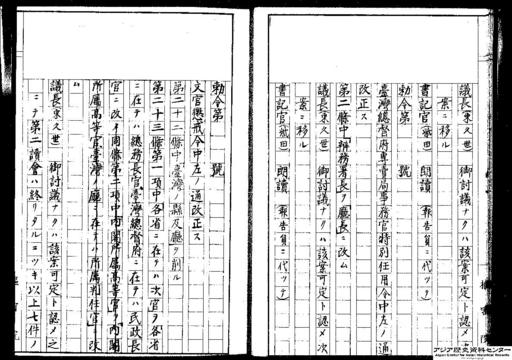 議長(東久世) 御討議ナクハ該案可定ト認メ次
案ニ移ル
書記官(飯田) 朗讀(報告員ニ代ツテ)
勅令第 號
臺灣總督府專賣局事務官特別任用令中左ノ通
改正ス
第二條中「辨務署長」ヲ「廳長」ニ改ム
議長(東久世) 御討議ナクハ該案可定ト認メ次
案ニ移ル
書記官(飯田) 朗讀(報告員ニ代ツテ)
勅令第 號
文官懲戒令中左ノ通改正ス
第二十二條中「臺灣ノ縣及廳」ヲ削ル
第二十三條第一項中「各省ニ在テハ次官」ヲ「各省
ニ在テハ總務長官、臺灣總督府ニ在テハ民政長
官」ニ改メ同條第二項中「内閣所屬高等官」ヲ「内閣
所屬高等官、臺灣ノ廳ニ在テハ所屬判任官」ニ改
ム
議長(東久世) 御討議ナクハ該案可定ト認メ之
ニテ第二讀會ハ終リタルニツキ以上七件ノ
アジア歴史資料センター
Japan Center for Asian Historical Records